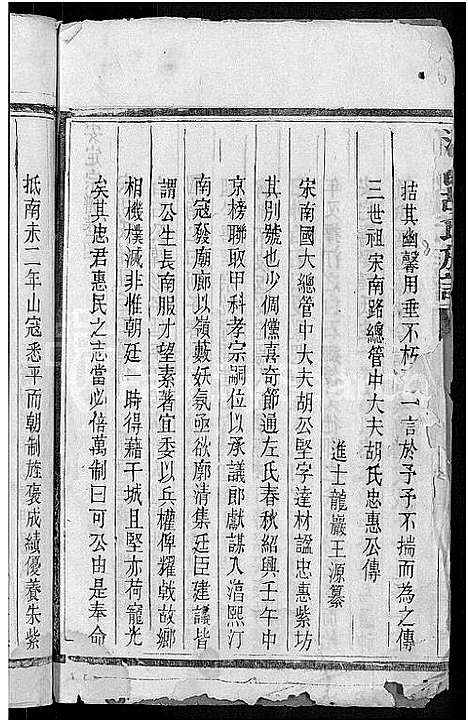 拮其幽馨用垂不朽一言於予予不揣而為之傳
三世祖宋南路總管中大夫胡氏忠惠公傳
進士龍巖王源纂
宋南國大總管中大夫胡公堅字達材諡忠惠紫坊
其別號也少倜儻喜奇節通左氏春秋紹興壬午中
京榜聯取甲科孝宗嗣位以承議郎獻謀入涪熙汀
南寇發廟廊以嶺藪妖氛亟欲廓清集廷臣建議皆
謂公生長南服才望素著宜委以兵權俾耀戟故鄉
相機撲滅非惟朝廷一時得藉干城且堅亦荷寵光
矣其忠君惠民之志當必倍萬制曰可公由是奉命
抵南未二年山寇悉平而朝制旌褒成績優養朱紫